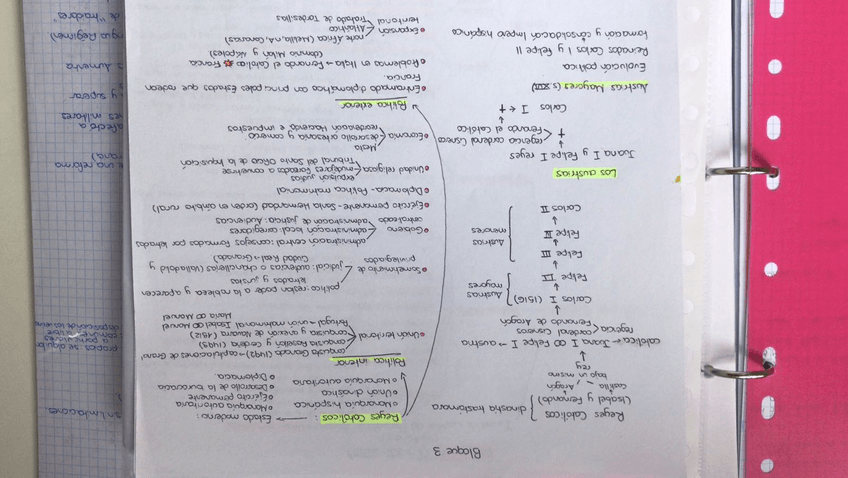 Bloque 3
Reyes Católicos
(Isabel y Fernando) } dinastía trastámara
Castilla Aragón
bajo un mismo
rey
católica ← Juana I ∞ Felipe I → austria
regencia < cardenal Cisneros
Fernando de Aragón
Carlos I (1516)
Felipe II
Austrias
mayores
Felipe III
Felipe IV
Carlos II
Austrias
menores
Los austrias
Juana I y Felipe I reyes
+ regencia cardenal Cisneros
Fernando el católico
Carlos I ← +
Austrias Mayores (s. XVI)
Evolución política
Reinados Carlos I y Felipe II
Formación y consolidación Imperio hispánico
Reyes Católicos: → Estado moderno:
o Monarquía hispánica
o Unión dinástica
o Monarquía autoritaria
o Monarquía autoritaria
o Ejército permanente
o Desarrollo de la burocracia
o Diplomacia
Política interior
• Unión territorial
conquista Granada (1492) → capitulaciones de Gran
conquista Rosellón y Cerdeña (1493)
conquista y anexión de Navarra (1512)
Portugal → unión matrimonial Isabel ∞ Manuel
María ∞ Manuel
• Sometimiento de
privilegiados
política: restan poder a la nobleza y aparecen
letrados y juristas
judicial: audiencias o chancillerías (Valladolid y
Ciudad Real → Granada)
• Gobierno
centralizado
administración central: consejos formados por letrados
administración local: corregidores
administración de justicia: Audiencias
• Ejército permanente - Santa Hermandad (orden en ámbito rural)
• Diplomacia - Política matrimonial
• Unidad religiosa
expulsión judíos
mudéjares forzados a convertirse
Tribunal del Santo Oficio de la Inquisición
• Economía
Mesta
desarrollo artesanía y comercio
reordenación Hacienda e impuestos
Política exterior
• Entramado diplomático con principales Estados que rodean
Francia
• Problemas en Italia → Fernando el Católico Francia
(dominio Milán y Nápoles)
• Expansión
territorial
norte África (Melilla, n.A, Canarias)
Atlántico
Tratado de Tordesillas